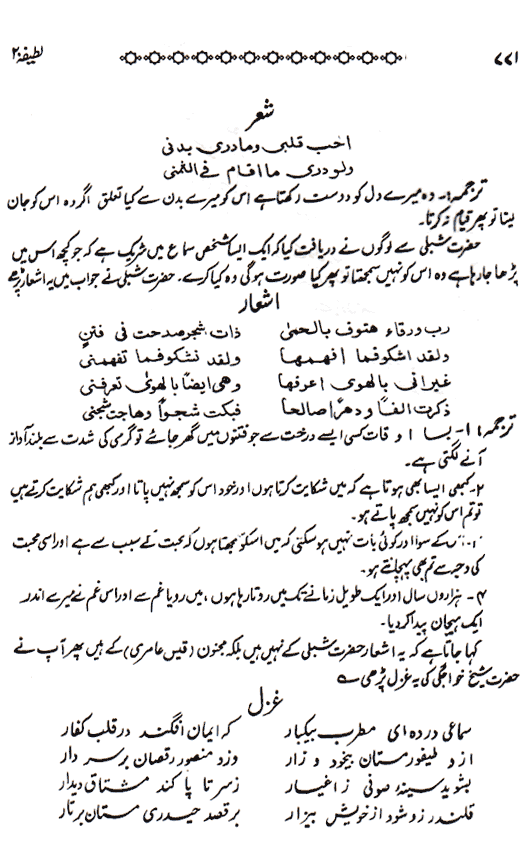 ۷۷۱ لطیفۂ ۲۰
شعر
احب قلبی وما دری بدنی
ولو دری ما اقام فی الثمنی
ترجمہ:۔ وہ میرے دل کو دوست رکھتا ہے اس کو میرے بدن سے کیا تعلق اگر وہ اس کو جان
لیتا تو پھر قیام نہ کرتا۔
حضرت شبلی سے لوگوں نے دریافت کیا کہ ایک ایسا شخص سماع میں شریک ہے کہ جو کچھ اس میں
پڑھا جا رہا ہے وہ اس کو نہیں سمجھتا تو پھر کیا صورت ہوگی وہ کیا کرے۔ حضرت شبلی نے جواب میں یہ اشعار پڑھے
اشعار
رب ورقاء هتوف بالحمیٰ ذات شجر صدحت فی فتنٍ
ولقد اشکو فما افهمها ولقد نشکو فما تفهمنی
غیر انی بالهوی اعرفها وهی ایضاً بالهویٰ تعرفنی
ذکرت الفاً و دهراً صالحا فبکت شجواً وهاجت شجنی
ترجمہ: ۱۔ بسا اوقات کسی ایسے درخت سے جو فتنوں میں گھر جائے تو گرمی کی شدت سے بلند آواز
آنے لگتی ہے۔
۲۔ کبھی ایسا بھی ہوتا ہے کہ میں شکایت کرتا ہوں اور خود اس کو سمجھ نہیں پاتا اور کبھی ہم شکایت کرتے ہیں
تو تم اس کو نہیں سمجھ پاتے ہو۔
کے سوا اور کوئی بات نہیں ہو سکتی کہ میں اسکو سمجھتا ہوں کہ محبت کے سبب سے ہے اور اسی محبت
کی وجہ سے تم بھی پہچلنتے ہو۔
۴۔ ہزاروں سال اور ایک طویل زمانے تک میں روتا رہا ہوں، میں رویا غم سے اور اس غم نے میرے اندر
ایک ہیجان پیدا کر دیا۔
کہا جاتا ہے کہ یہ اشعار حضرت شبلی کے نہیں ہیں بلکہ مجنون (قیس عامری) کے ہیں پھر آپ نے
حضرت شیخ خواجگی کی یہ غزل پڑھی ؎
غزل
سماعی در دہ ای مطرب بیکبار کہ ایمان افگند در قلب کفار
ازو طیفور مستان بیخود و زار وزد منصور رقصان بر سر دار
بشوید سینۂ صوفی ز اغیار ز سر تا پا کند مشتاق دیدار
قلندر زو شود از خویش بیزار برقصد حیدری مستان بر تار